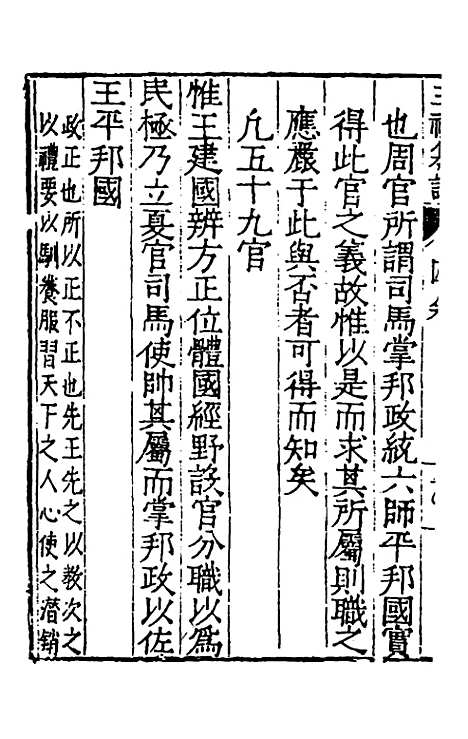 三禮纂註
也周官所謂司馬掌邦政統六師平邦國實
得此官之義故惟以是而求其所屬則職之
應嚴于此與否者可得而知矣
凡五十九官
惟王建國辨方正位體國經野設官分職以爲
民極乃立夏官司馬使帥其屬而掌邦政以佐
王平邦國
政正也所以正不正也先王先之以教次之
以禮要以馴養服習天下之人心使之潛銷